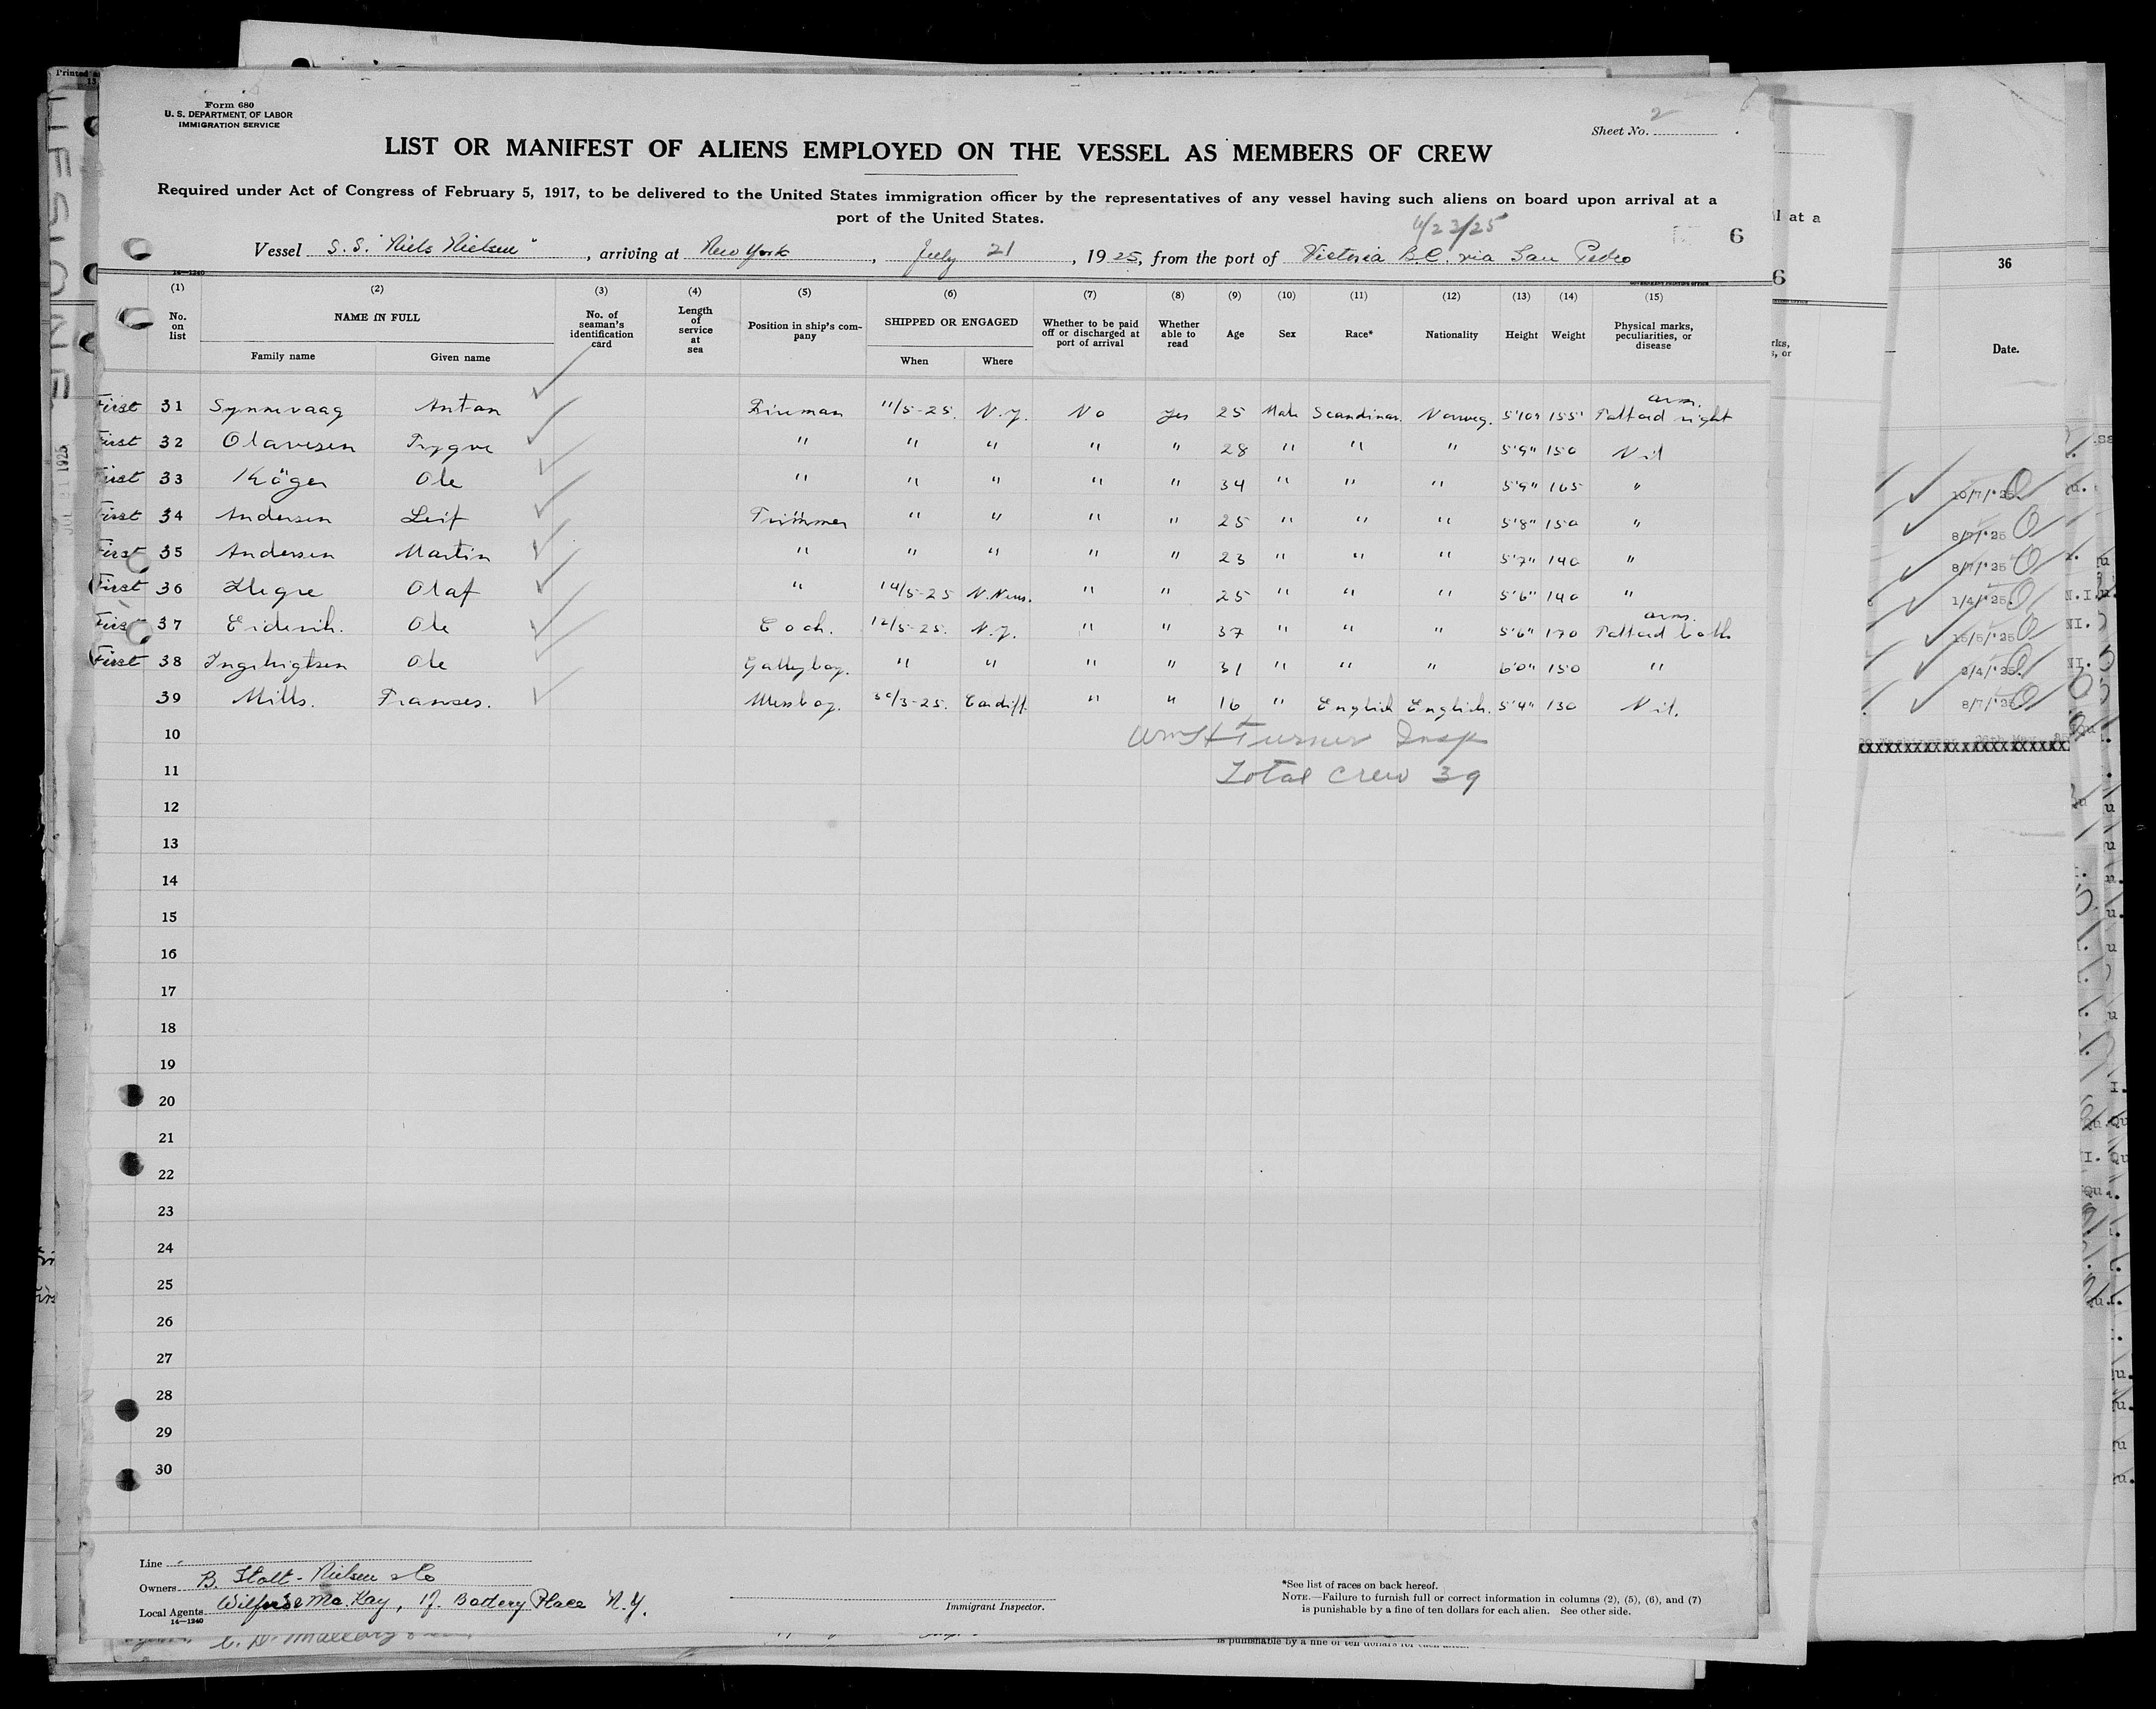 Form 680
U. S. DEPARTMENT OF LABOR
IMMIGRATION SERVICE
Sheet No. 2
LIST OR MANIFEST OF ALIENS EMPLOYED ON THE VESSEL AS MEMBERS OF CREW
Required under Act of Congress of February 5, 1917, to be delivered to the United States immigration officer by the representatives of any vessel having such aliens on board upon arrival at a
port of the United States.
6
Vessel S.S. "Niels Nielsen", arriving at New York, July 21, 1925, from the port of Victoria B.C. via San Pedro
14—1240
(1) (2) (3) (4) (5) (6) (7) (8) (9) (10) (11) (12) (13) (14) (15)
No. on list NAME IN FULL No. of seaman's identification card Length of service at sea Position in ship's company SHIPPED OR ENGAGED Whether to be paid off or discharged at port of arrival Whether able to read Age Sex Race* Nationality Height Weight Physical marks, peculiarities, or disease
Family name Given name When Where
First 31 Synnevaag Anton Fireman 11/5-25. N.Y. No Yes 25 Male Scandinav. Norweg. 5'10" 155 Tattoed right arm.
First 32 Olavesen Trygve " " " " " 28 " " " 5'9" 150 Nil
First 33 Köger Ole " " " " " 34 " " " 5'9" 165 "
First 34 Andersen Leif Trimmer " " " " 25 " " " 5'8" 150 "
First 35 Andersen Martin " " " " " 23 " " " 5'7" 140 "
First 36 Hegre Olaf " 14/5-25 N.News. " " 25 " " " 5'6" 140 "
First 37 Ole Cook. 12/5-25. N.Y. " " 37 " " " 5'6" 170 Tattoed both arms.
First 38 Ole Galleyboy. " " " " 31 " " " 6'0" 150 "
39 Mills. Franses. Messboy. 30/3-25. Cardiff. " " 16 " English English. 5'4" 130 Nil.
10 Wm H Turner Insp
11 Total crew 39
12
13
14
15
16
17
18
19
20
21
22
23
24
25
26
27
28
29
30
Line
Owners B. Stolt-Nielsen & Co
Local Agents Mc.Kay, 17. Battery Place N.Y.
14—1240
Immigrant Inspector.
*See list of races on back hereof.
NOTE.—Failure to furnish full or correct information in columns (2), (5), (6), and (7)
is punishable by a fine of ten dollars for each alien. See other side.
l at a
6
36
Date.
10/7/'25.
8/7/'25
8/7/'25
1/4/'25.
15/5/'25
2/4/'25.
8/7/'25